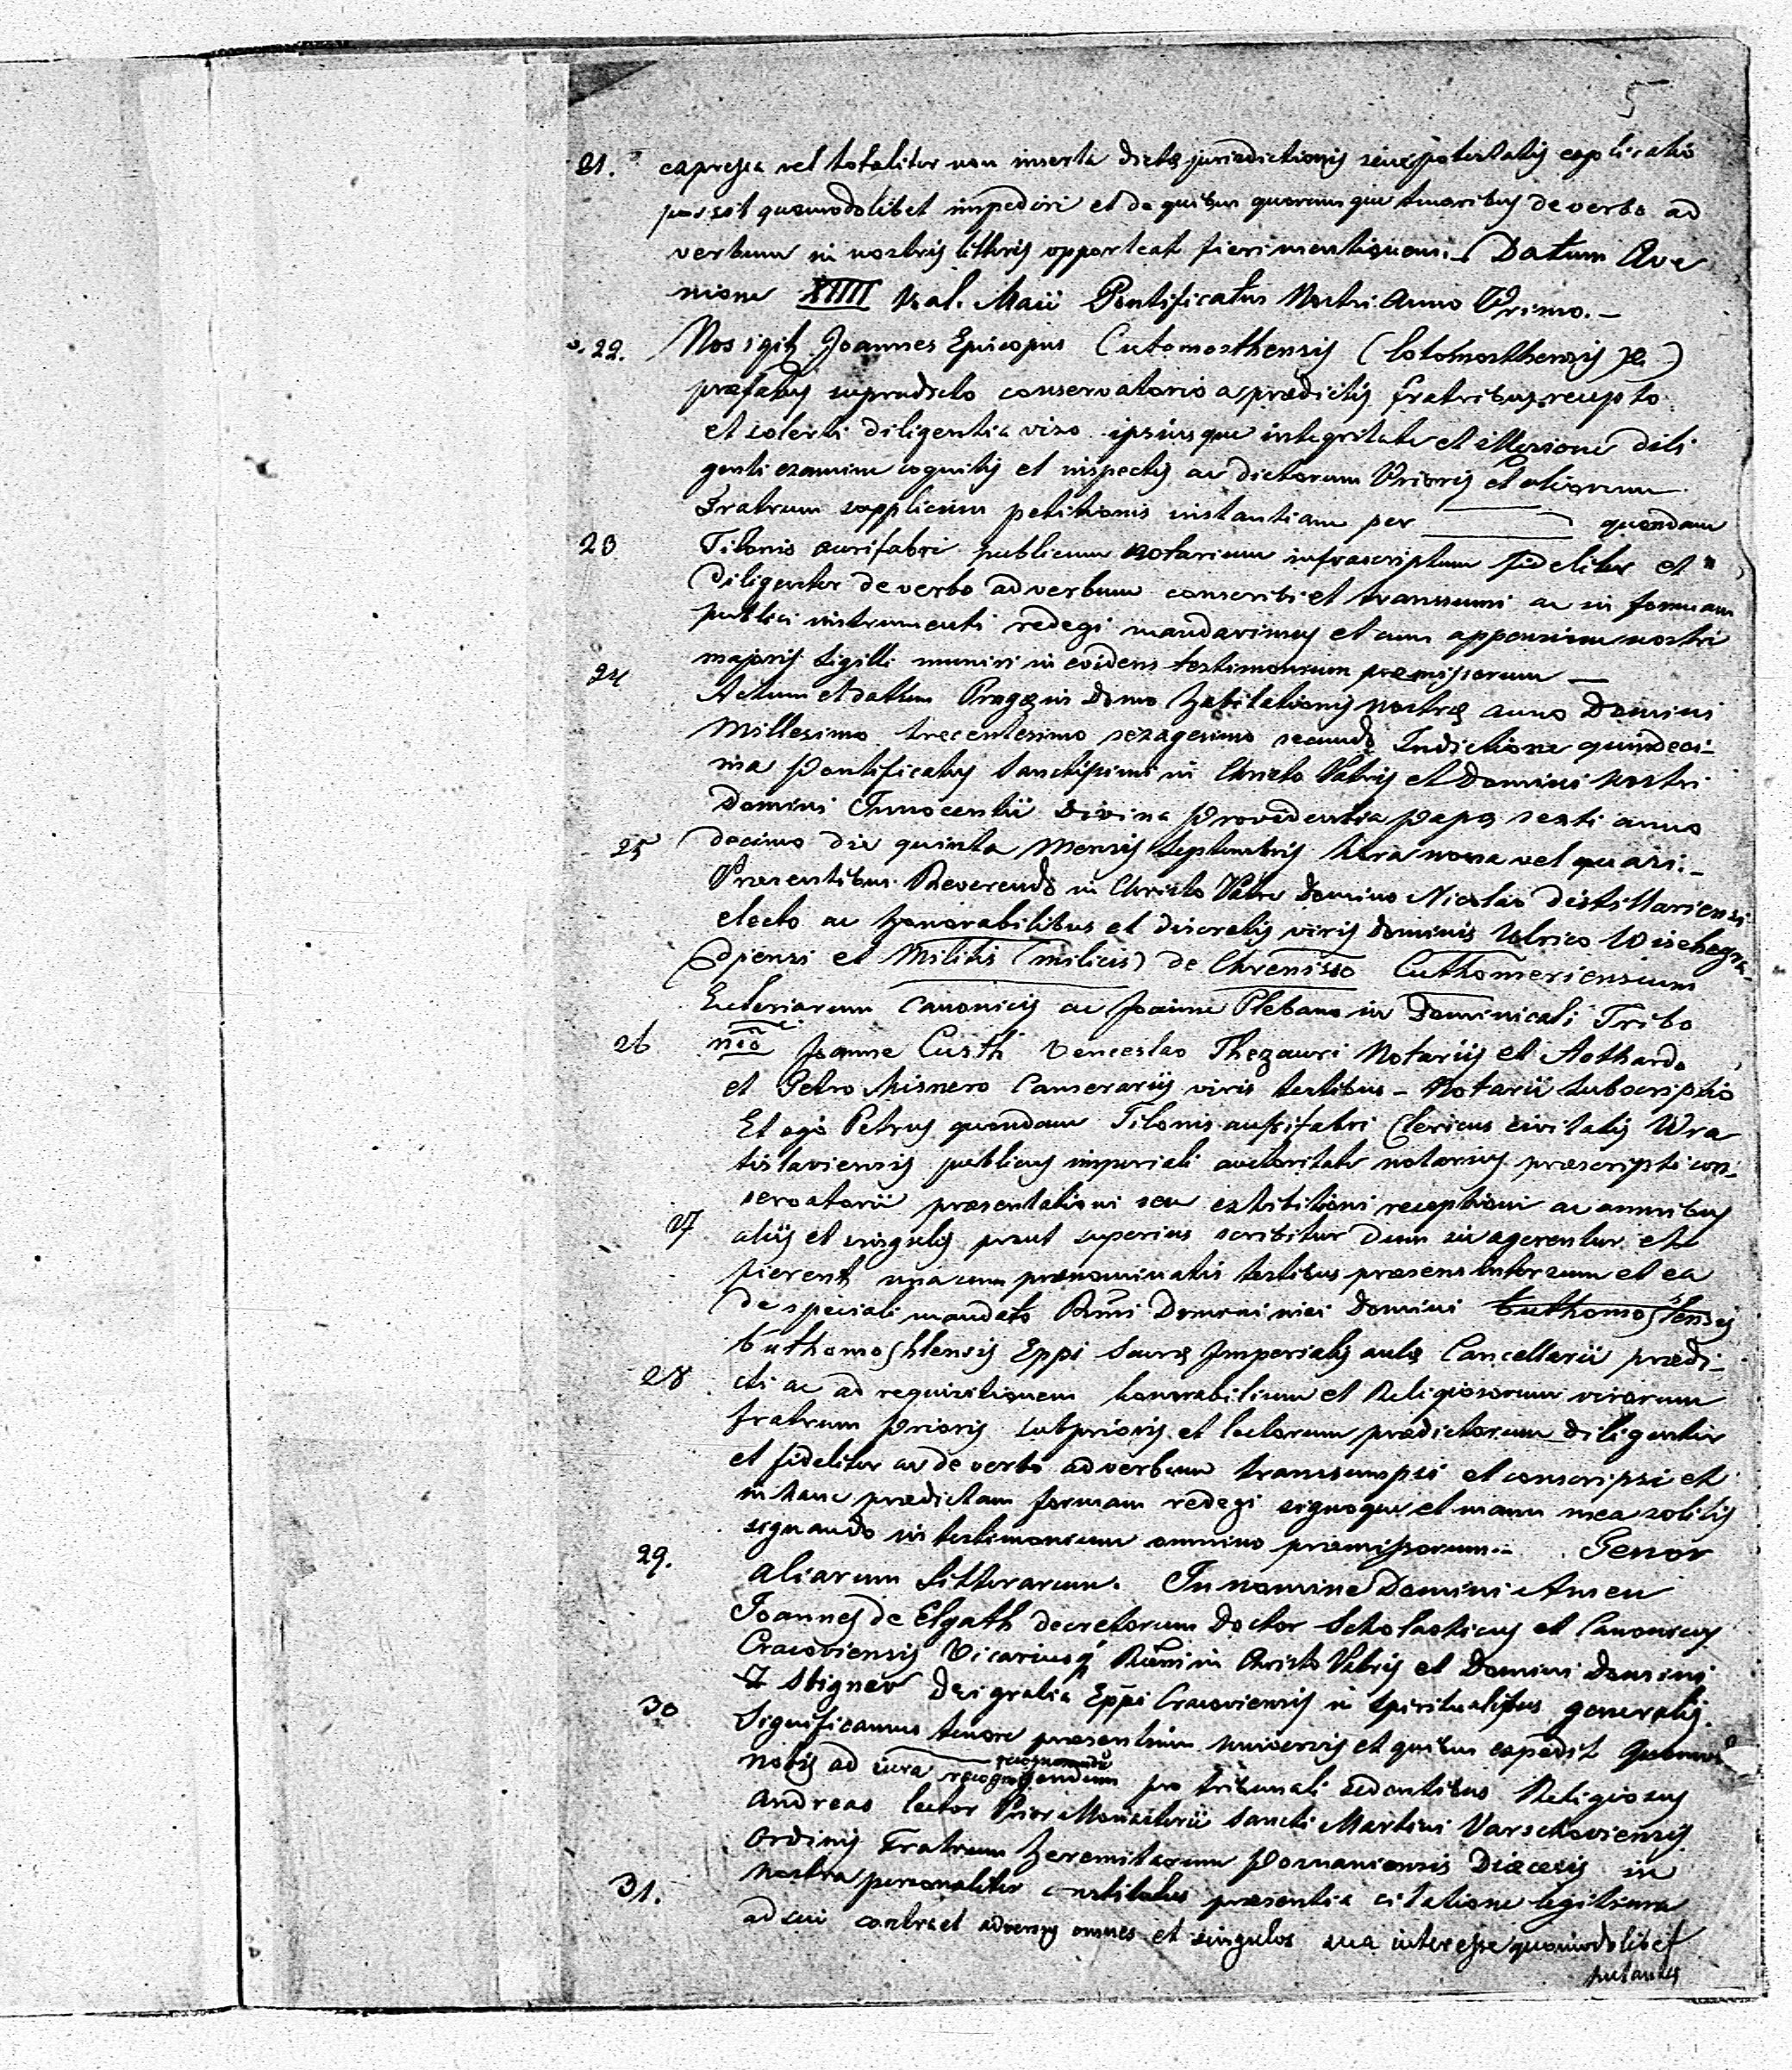 5
21. expressa vel totaliter non inserta dictę jurisdictionis seu potestatis explicatio
possit quomodolibet impediri et de quibus quorumque tenoribus de verbo ad
verbum in nostris litteris opporteat fieri mentionem.- Datum Ave
nione XIIII Kal. Maii Pontificatus Nostri Anno Primo.-
22. Nos igitz Joannes Episcopus Cutomosthensis (Cotomosthensis)
præfatus supradicto conservatorio a prædictis fratribus recepto
et solerti diligentia viso ipsiusque integritate et illesione dili
genti examine cognitis et inspectis ac dictorum Prioris et aliorum
Fratrum supplicum petitionis instantiam per quondam
23 Tilonis aurifabri publicum notarium infrascriptum fideliter et
diligenter de verbo ad verbum conscribi et transsumi ac in formam
publici instrumenti redegi mandavimus et cum appensione nostri
majoris Sigilli muniri in evidens testimonium præmissorum —
24 Actum et datum Pragę in Domo habitationis nostrę anno Domini
Millesimo trecentesimo sexagesimo secundo Indictione quindeci-
ma Pontificatus Sanctissimi in Christo Patris et Domini nostri
Domini Innocentii Divina Providentia Papę sexti anno
25 decimo die quinta Mensis Septembris hora nona vel quasi.-
Præsentibus Reverendo in Christo Patre Domino Nicolao Distillariensi
electo ac honorabilibus et discretis viris Dominis Ulrico Wischegra-
djensi et Militis (milicis) de Chremisso Cuthomeriensium
Ecclesiarum Canonicis ac Joanne Plebano in Dominicali Tribo
26 nio Joanne Custh Venceslao Thezauri Notariis et Aothardo
et Petro Misnero Camerariis viris testibus - Notarii subscriptio
Et ego Petrus quondam Tilonis aurifabri Clericus civitatis Wra
tislaviensis publicus imperiali auctoritate notarius præscripti con-
servatorii præsentationi seu exhibitioni receptioni ac omnibus
27 aliis et singulis prout superius scribitur dum sic agerentur et
fierent una cum prænominatis testibus præsens interfui et ea
de speciali mandato Rmi Domini mei Domini Cuthomostensis
Cuthomoshtensis Eppi Sacrę Imperialis aulę Cancellarii prædi-
28 cti ac ad requisitionem honorabilium et Religiosorum virorum
fratrum Prioris subprioris et lectorum prædictorum diligenter
et fideliter ac de verbo ad verbum transsumpsi et conscripsi et
in hanc prædictam formam redegi signoque et manu mea solitis
signando in testimonium omnium præmissorum.- Tenor
29. aliarum Litterarum. In nomine Domini Amen
Joannes de Elgath decretorum Doctor Scholasticus et Canonicus
Cracoviensis Vicariusq Rmi in Christo Patris et Domini Domini
Sbignev Dei gratia Eppi Cracoviensis in spiritualibus generalis.
30 Significamus tenore præsentium universis et quibus expedit Quomodo
nobis ad iura recognoscendum pro tribunali sedentibus Religiosus
Andreas lector Prior Monasterii Sancti Martini Varschoviensis
Ordinis Fratrum heremitarum Posnaniensis Diœcesis in
31. nostra personaliter constitutus præsentia citatione legitima
ad sui contra et adversus omnes et singulos sua interesse quomodolibet
putantes